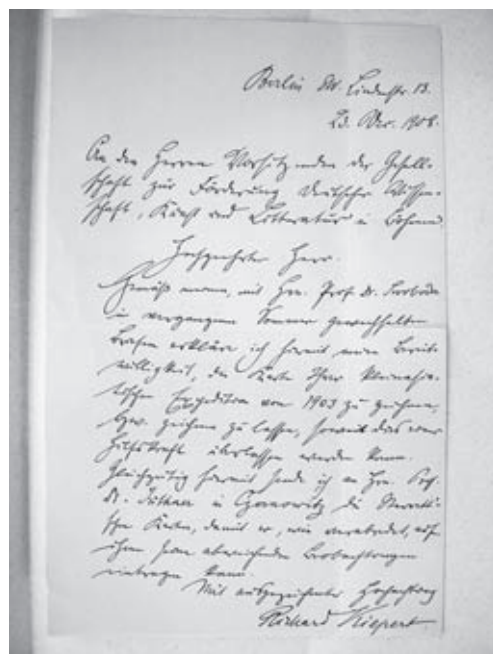 Berlin SW. Lindenstr. 13.
23. 1908.
An den Herren Vorsitzenden der Gesell-
schaft zur Förderung deutscher Wissen-
schaft, Kunst und Litteratur in Böhmen.
Hochgeehrter Herr.
Gemäß meinen, mit Hrn. Prof. Dr. Swoboda
im vergangenen Sommer gewechselten
Briefen erkläre ich hiermit meine Bereit-
willigkeit, die Karte Ihrer kleinasia-
tischen Expedition von 1902 zu zeichnen,
bzw. zeichnen zu lassen, soweit das einer
Hilfskraft überlassen werden kann.
Gleichzeitig hiermit sende ich an Hrn. Prof.
Dr. Jüthner in Czernowitz die
Karten, damit er, wie verabredet, auf
ihnen seine abweichenden Beobachtungen
eintragen kann.
Mit ausgezeichneter Hochachtung
Richard Kiepert.